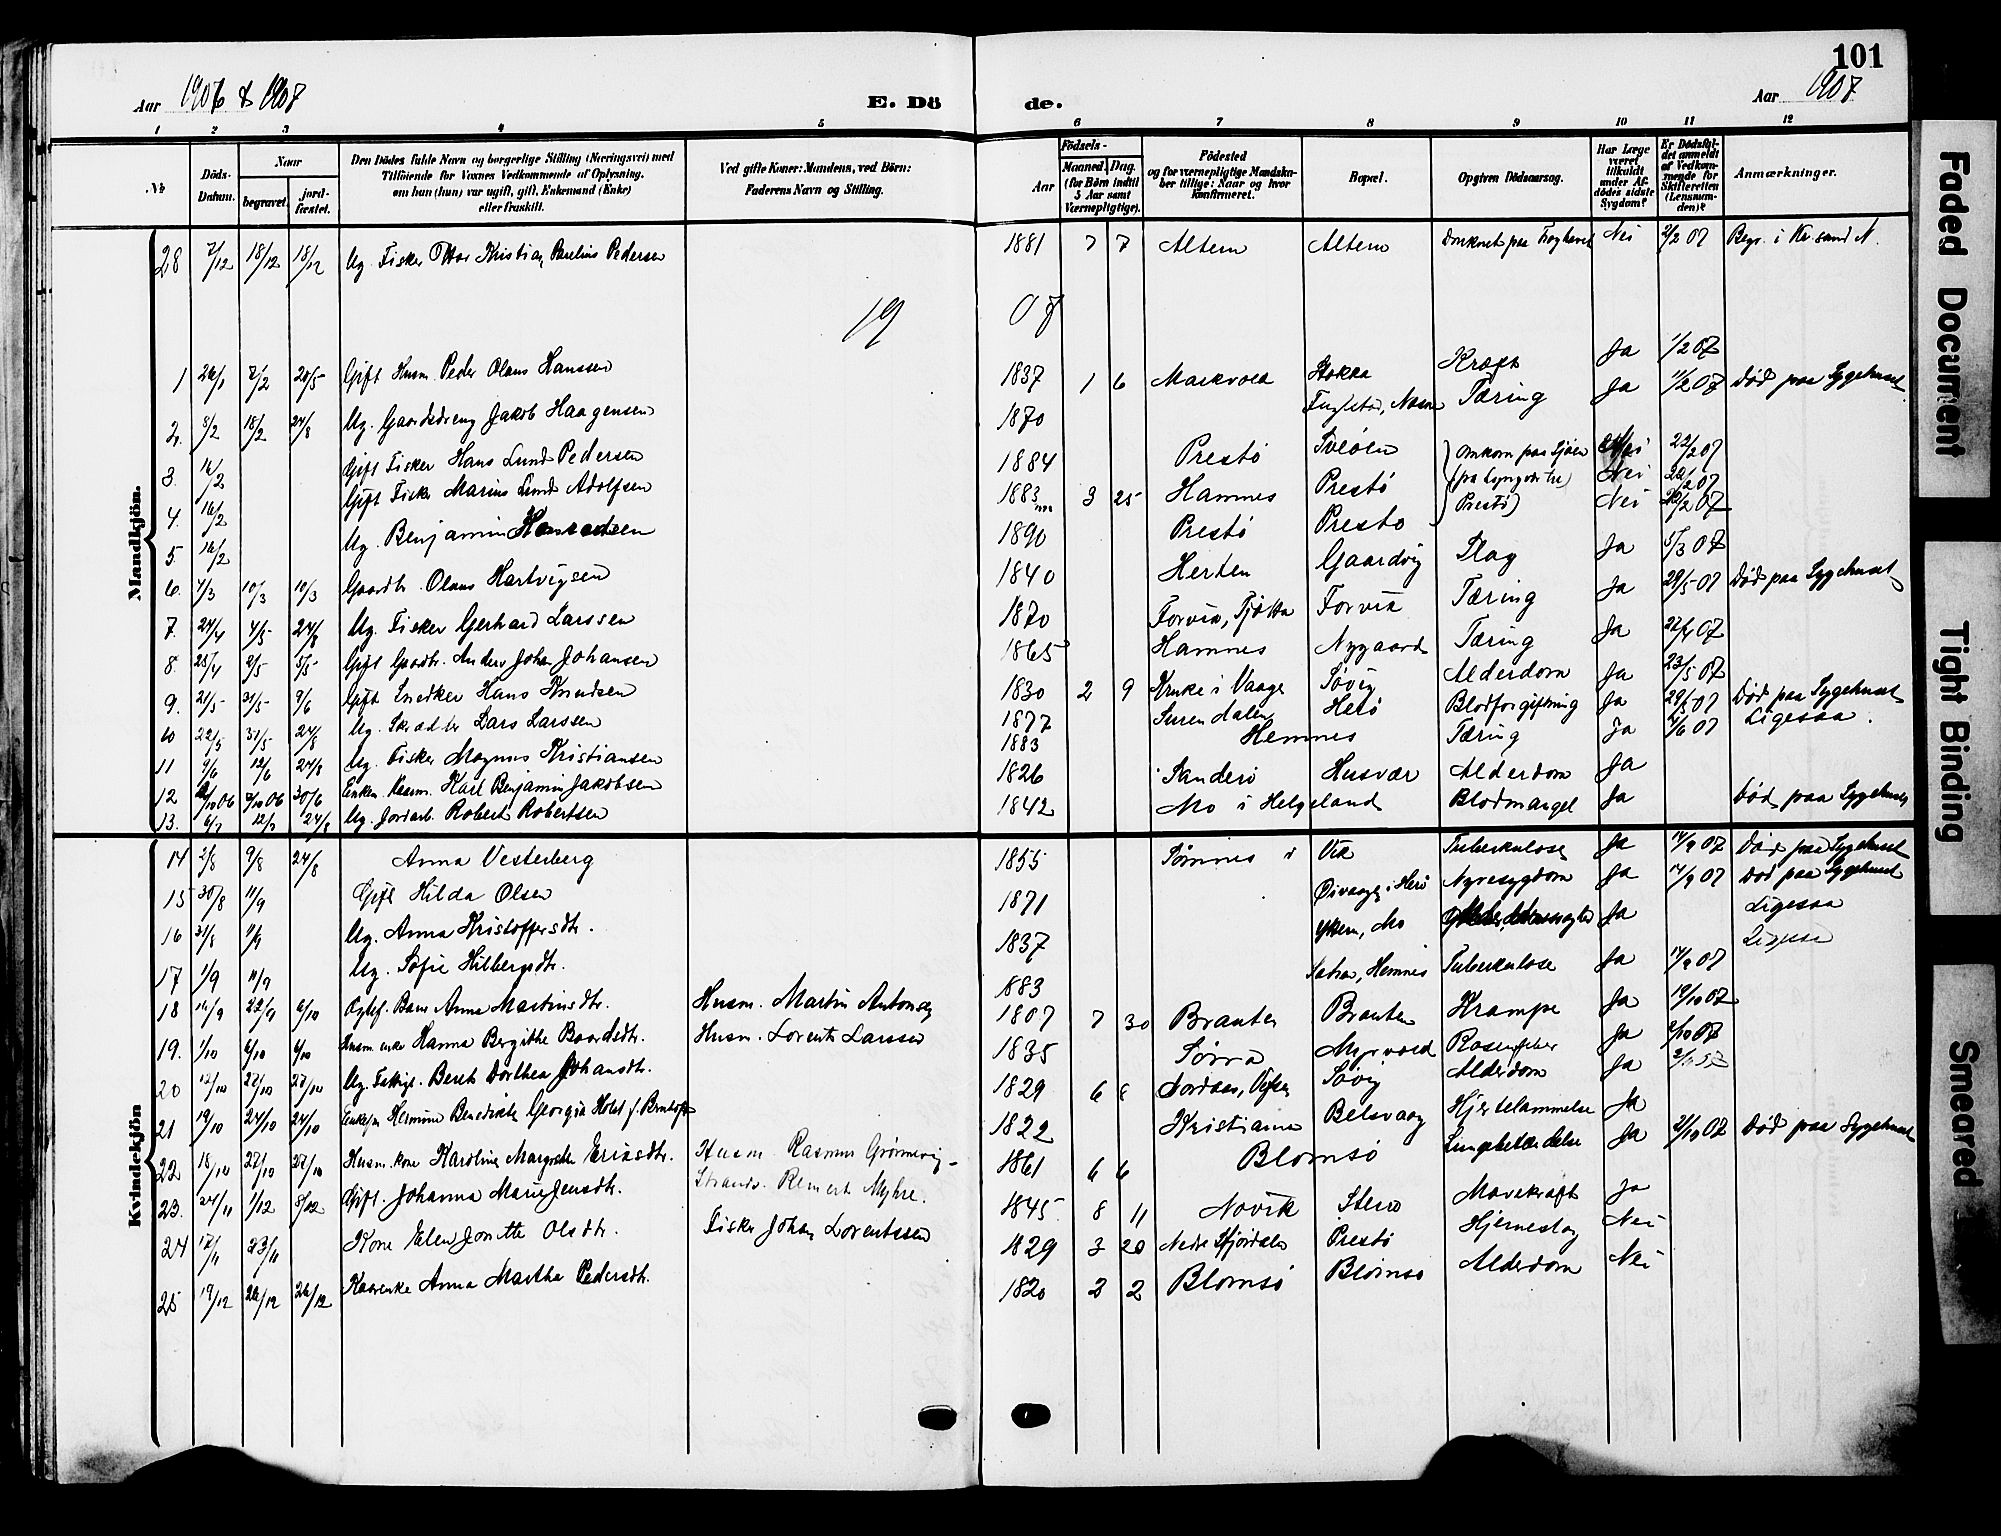 101
Aar 1906 & 1907 E. Dö de. Aar 1907
1 2 3 4 5 6 7 8 9 10 11 12
No Döds-Datum. Naar begravet. jord-fæstet. Den Dödes fulde Navn og borgerlige Stilling (Næringsvei) med Tilföiende for Voxnes Vedkommende af Oplysning, om han (hun) var ugift, gift, Enkemand (Enke) eller fraskilt. Ved gifte Koner: Mandens, ved Börn: Faderens Navn og Stilling. Födsels- Aar Maaned Dag. (for Börn indtil 5 Aar samt Værnepligtige). Födested og for værnepligtige Mandska-ber tillige: Naar og hvor konfirmeret. Bopæl. Opgiven Dödsaarsag. Har Læge været tilkaldt under Af-dödes sidste Sygdom? Er Dödsfal-det anmeldt af Vedkom-mende for Skifteretten (Lensman-den)? Anmærkninger.
Mandkjön.
28 7/12 18/12 18/12 Ug. Fisker Ottar Kristian Parelius Pedersen 1881 7 7 Altern Altern Druknet paa Nei 2/2 07 Begr. i Kr.sund N.
1907
1 26/1 7/2 20/5 Gift Husm. Peder Olaus Hanssen 1837 1 6 Markvold Stokka Kræft Ja 1/2 07
2. 8/2 18/2 24/8 Ug. Gaardsdreng Jakob Haagensen 1870 Tæring Ja 11/2 07 Död paa Sygehuset
3. 16/2 Gift Fisker Hans Lund Pedersen 1884 Prestö Sveöen Omkom paa Sjöen Nei 22/2 07
4. 16/2 Gift Fisker Marius Lund Adolfsen 1883 3 25 Hamnes Prestö Nei 22/2 07
5 16/2 Ug. Benjamin 1890 Prestö Prestö Prestö) Nei 22/2 07
6. 4/3 10/3 10/3 Gaardbr. Olaus Hartvigsen 1840 Herten Gaardvig Slag Ja 5/3 07
7. 24/4 4/5 24/8 Ug. Fisker Gerhard Larssen 1870 Forvik, Tjötta Forvik Tæring Ja 29/5 07 Död paa Sygehuset
8. 25/4 2/5 5/5 Gift Gaardbr. Anders Johan Johansen 1865 Hamnes Nygaard Tæring Ja 22/4 07
9. 21/5 31/5 9/6 Gift Snedker Hans Knudsen 1830 2 9 Kruke i Vaage Sövig Alderdom Ja 23/5 07
10 22/5 31/5 24/8 Ug. Skrædder Lars Larssen 1877 Surendalen Herö Blodforgiftning Ja 29/5 07 Död paa Sygehuset
11 9/6 12/6 24/8 Ug. Fisker Magnus Kristiansen 1883 Hemnes Tæring Ja 4/6 07 Ligesaa.
12 2/10 06 7/10 06 30/6 Enkem. Karl Benjamin Jakobsen 1826 Sanderö Husvær Alderdom Ja
13. 6/7 12/7 24/8 Ug. Jordarb. Robert Robertsen 1842 Mo i Helgeland Blodmangel Ja Död paa Sygehuset
Kvindekjön
14 2/8 9/8 24/8 Anna Vesterberg 1855 Sömnes i Vik Tuberkulose Ja 14/9 07 Död paa Sygehuset
15 30/8 11/9 Gift Hilda Olsen 1871 Öivaage, i Herö Nyresygdom Ja 14/9 07 Död paa Sygehuset
16 31/8 11/9 Ug. Anna Kristoffersdtr. 1837 Ytteren, Mo Ja Ligesaa
17 1/9 11/9 Ug. Sofie Hilbergsdtr. 1883 Hemnes Tuberkulose Ja 14/9 07 Ligesaa
18 14/9 22/9 6/10 Barn Anna Martinsdtr. Husm. Martin Antonsen 1807 7 30 Brauten Brauten Krampe Ja 19/10 07
19. 1/10 6/10 6/10 Husm. enke Hanna Bergithe Baardsdtr. Husm. Lorents Larssen 1835 Sörra Myrvold Rosenfeber Ja 2/10 07
20 12/10 27/10 27/10 Ug. Fattigl. Beret Dorthea Johansdtr. 1829 6 8 Nordaas, Sövig Alderdom Ja
21 19/10 24/10 24/10 Enkefru Hermine Benedikte Georgia Holst f. 1822 Kristiania Belsvaag Hjertelammelse Ja
22 18/10 27/10 27/10 Husm. kone Karoline Margrethe Eriksdtr. Husm. Rasmus Grönnevig 1861 6 6 Blomsö Lungebetændelse Ja 21/10 07 Död paa Sygehuset
23. 24/11 1/12 8/12 Gift. Johanna Marie Jensdtr. Strands. Reinert Myhre. 1845 8 11 Novik Stenö Mavekræft Ja
24 17/11 23/11 Kone Elen Jonette Olsdtr. Fisker Johan Lorentssen 1829 3 20 Nedre Stjördalen Prestö Hjerneslag Nei
25 19/12 26/12 26/12 Kaarenke Anna Martha Pedersdtr. 1820 2 2 Blomsö Blomsö Alderdom Nei
Faded Document
Tight Binding
Smeared